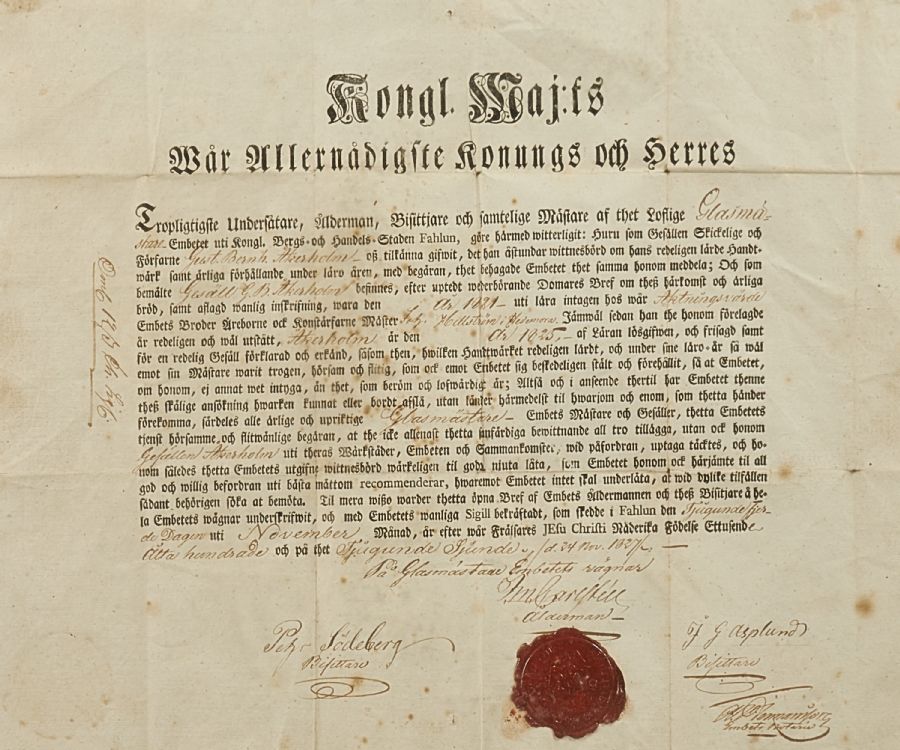 Kongl. Maj:ts
Wår Allernådigste Konungs och Herres
Tropligtigste Undersåtare, Ålderman, Bisittiare och samtelige Mästare af thet Loflige Glasmä-
stare Embetet uti Kongl. Bergs- och Handels-Staden Fahlun, göre härmed witterligit: Huru som Gesällen Skickelige och
Förfarne Gust. Bernh. Åkerholm oß tilkänna gifwit, det han åstundar wittnesbörd om hans redeligen lärde Handt-
wärk samt ärliga förhållande under läro åren, med begäran, thet behagade Embetet thet samma honom meddela; Och som
bemälte Gesäll G. B. Åkerholm befinnes, efter uptedt wederbörande Domares Bref om theß härkomst och ärliga
bröd, samt aflagd wanlig inskrifning, wara den År 1821 uti lära intagen hos wår Aktningswärde
Embets Broder Äreborne ock Konstärfarne Mäster Hellström i Hedemora. Jämwäl sedan han the honom förelagde
är redeligen och wäl utstått, Åkerholm är den År 1825, af Läran lösgifwen, och frisagd samt
för en redelig Gesäll förklarad och erkänd, såsom then, hwilken Handtwärket redeligen lärdt, och under sine läro-år så wäl
emot sin Mästare warit trogen, hörsam och flitig, som ock emot Embetet sig beskedeligen stält och förehållit, så at Embetet,
om honom, ej annat wet intyga, än thet, som beröm och lofwärdigt är; Altså och i anseende thertil har Embetet thenne
theß skälige ansökning hwarken kunnat eller bordt afslå, utan länder härmedelst til hwarjom och enom, som thetta händer
förekomma, särdeles alle ärlige och upriktige Glasmästare Embets Mästare och Gesäller, thetta Embetets
tjenst hörsamme och flitwänlige begäran, at the icke allenast thetta ünfärdiga bewittnande all tro tillägga, utan ock honom
Gesällen Åkerholm uti theras Wärkstäder, Embeten och Sammankomster, wid påfordran, uptaga täcktes, och ho-
nom således thetta Embetets utgifne wittnesbörd wärkeligen til godt niuta låta, som Embetet honom ock härjämte til all
god och willig befordran uti bästa måttom recommenderar, hwaremot Embetet intet skal underlåta, at wid dylike tilfällen
sådant behörigen söka at bemöta. Til mera wißo warder thetta öpna Bref af Embets Åldermannen och theß Bisitjare å he-
la Embetets wägnar underskrifwit, och med Embetets wanliga Sigill bekräftadt, som skedde i Fahlun den Tjugundefjer-
de Dagen uti November Månad, år efter wår Frälsares JEsu Christi Nåderika Födelse Ettusende
Åtta hundrade och på thet Tjugunde Sjunde. /d. 24 Nov. 1827/.
På Glasmästare Embetets wägnar
Carsten
Ålderman
Petr Södeberg
Bisittare
J G Asplund
Bisittare
Embets Notarie